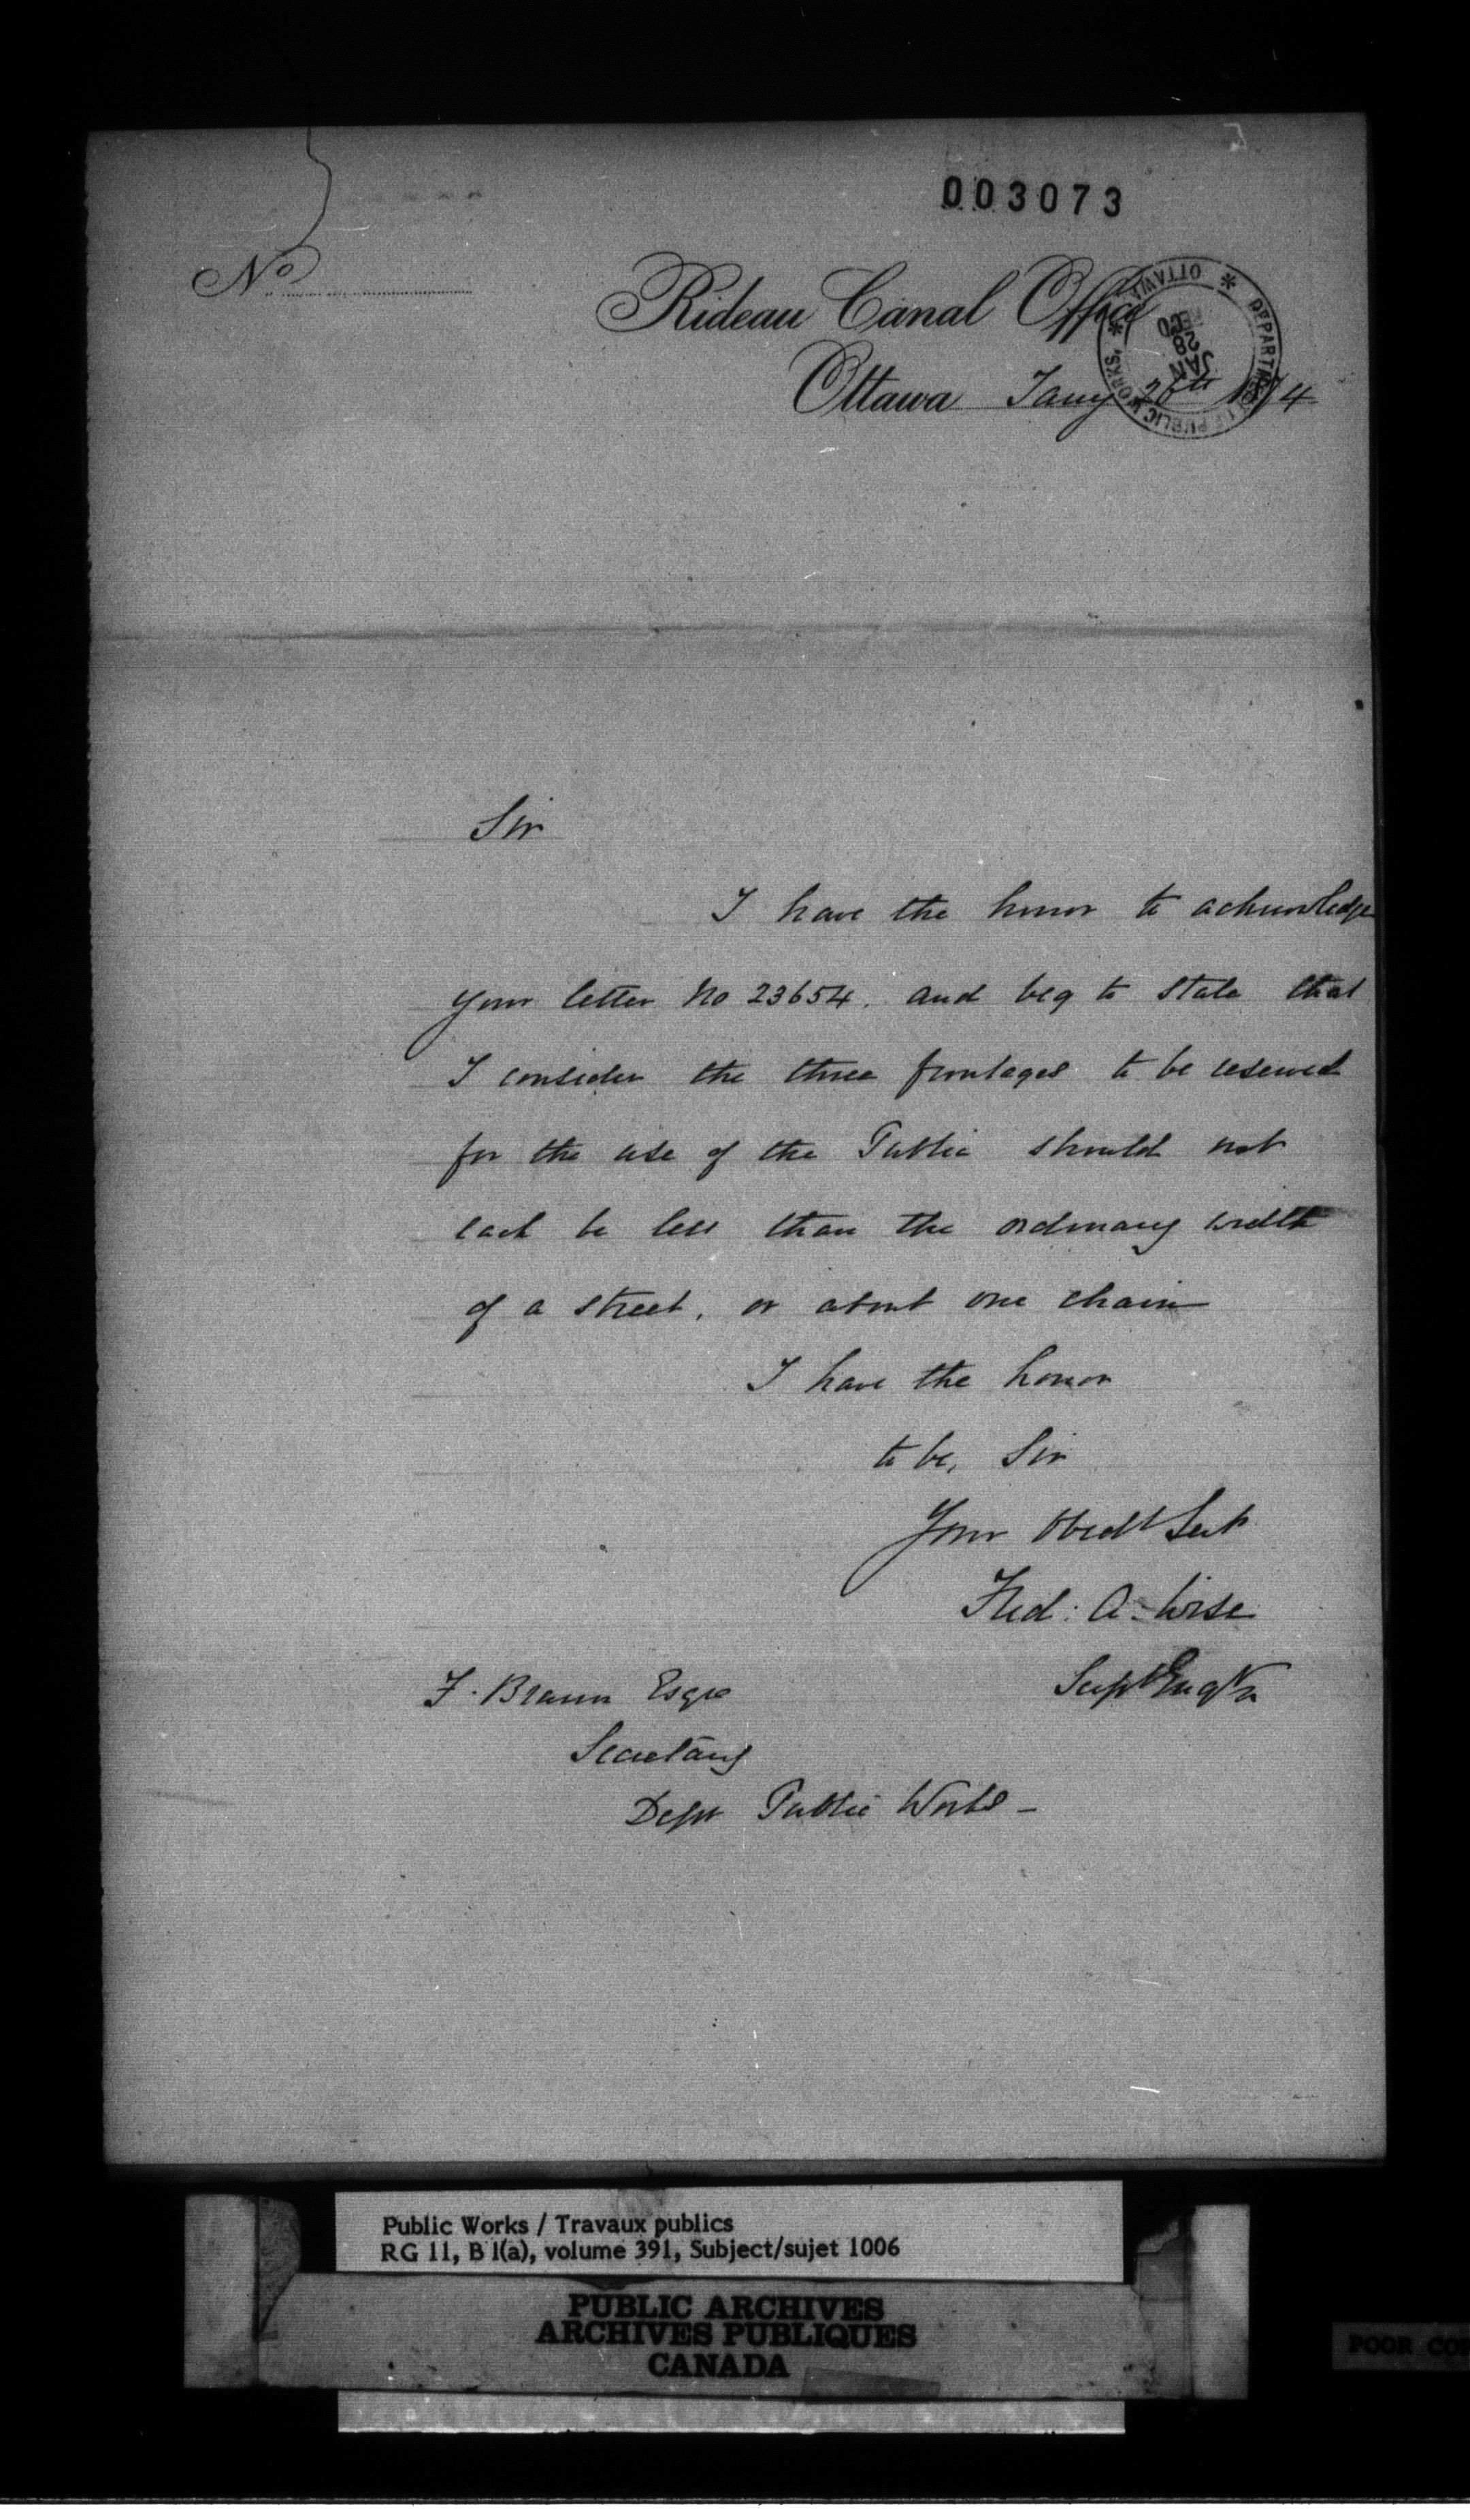 003073
No
Rideau Canal Office
Ottawa Jany 26th 1874
* DEPARTMENT OF PUBLIC WORKS, * OTTAWA
JAN
28
Sir
I have the honor to acknowledge
your letter No 23654. and beg to state that
I consider the three frontages to be reserved
for the use of the Public should not
each be less than the ordinary width
of a street, or about one chain
I have the honor
to be, Sir
Your Obedt Servt
Fred: A. Wise
Supt Engr
F. Braun Esqre
Secretary
Dept Public Works -
Public Works / Travaux publics
RG 11, B 1(a), volume 391, Subject/sujet 1006
PUBLIC ARCHIVES
ARCHIVES PUBLIQUES
CANADA
POOR CO